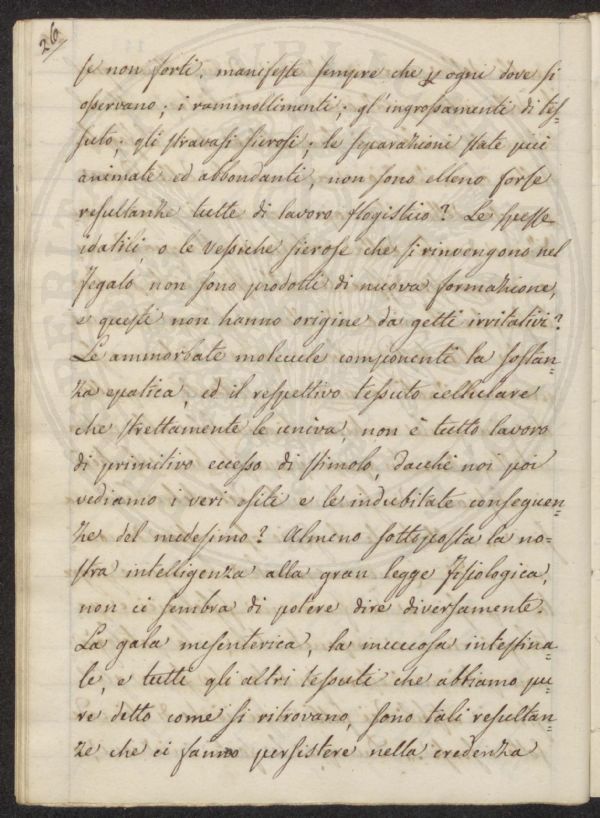 26
se non forti, manifeste sempre che p ogni dove si
osservano; i rammollimenti; gl'ingrossamenti di tes=
suto; gli stravasi sierosi; le separazioni state più
animate ed abbondanti, non sono elleno forse
resultanze tutte di lavoro flogistico? Le spesse
idatili, o le vessiche sierose che si rinvengono nel
fegato non sono prodotti di nuova formazione,
e questi non hanno origine da getti irritativi?
Le ammorbate molecule componenti la sostan=
za epatica, ed il respettivo tessuto cellulare
che strettamente le univa, non è tutto lavoro
di primitivo eccesso di stimolo, dacchè noi poi
vediamo i veri esiti e le indubitate conseguen=
ze del medesimo? Almeno sottoposta la no=
stra intelligenza alla gran legge fisiologica,
non ci sembra di potere dire diversamente.
La gala mesenterica, la muccosa intestina=
le, e tutti gli altri tessuti che abbiamo pu=
re detto come si ritrovano, sono tali resultan=
ze che ci fanno persistere nella credenza